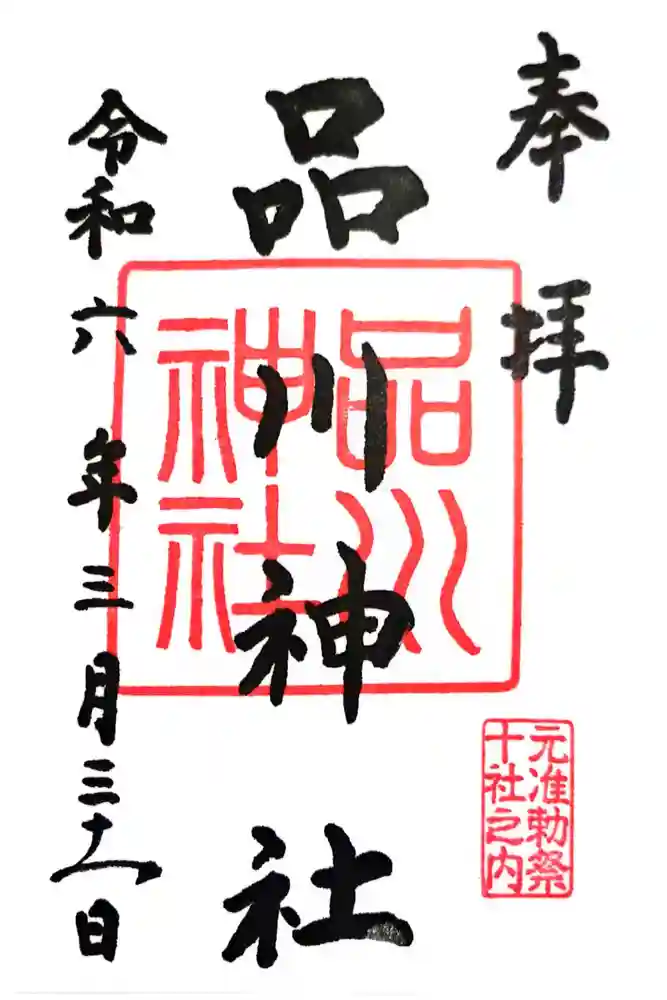 奉拝
品川神社
品川
神社
元准勅祭
十社之内
令和六年三月三十一日